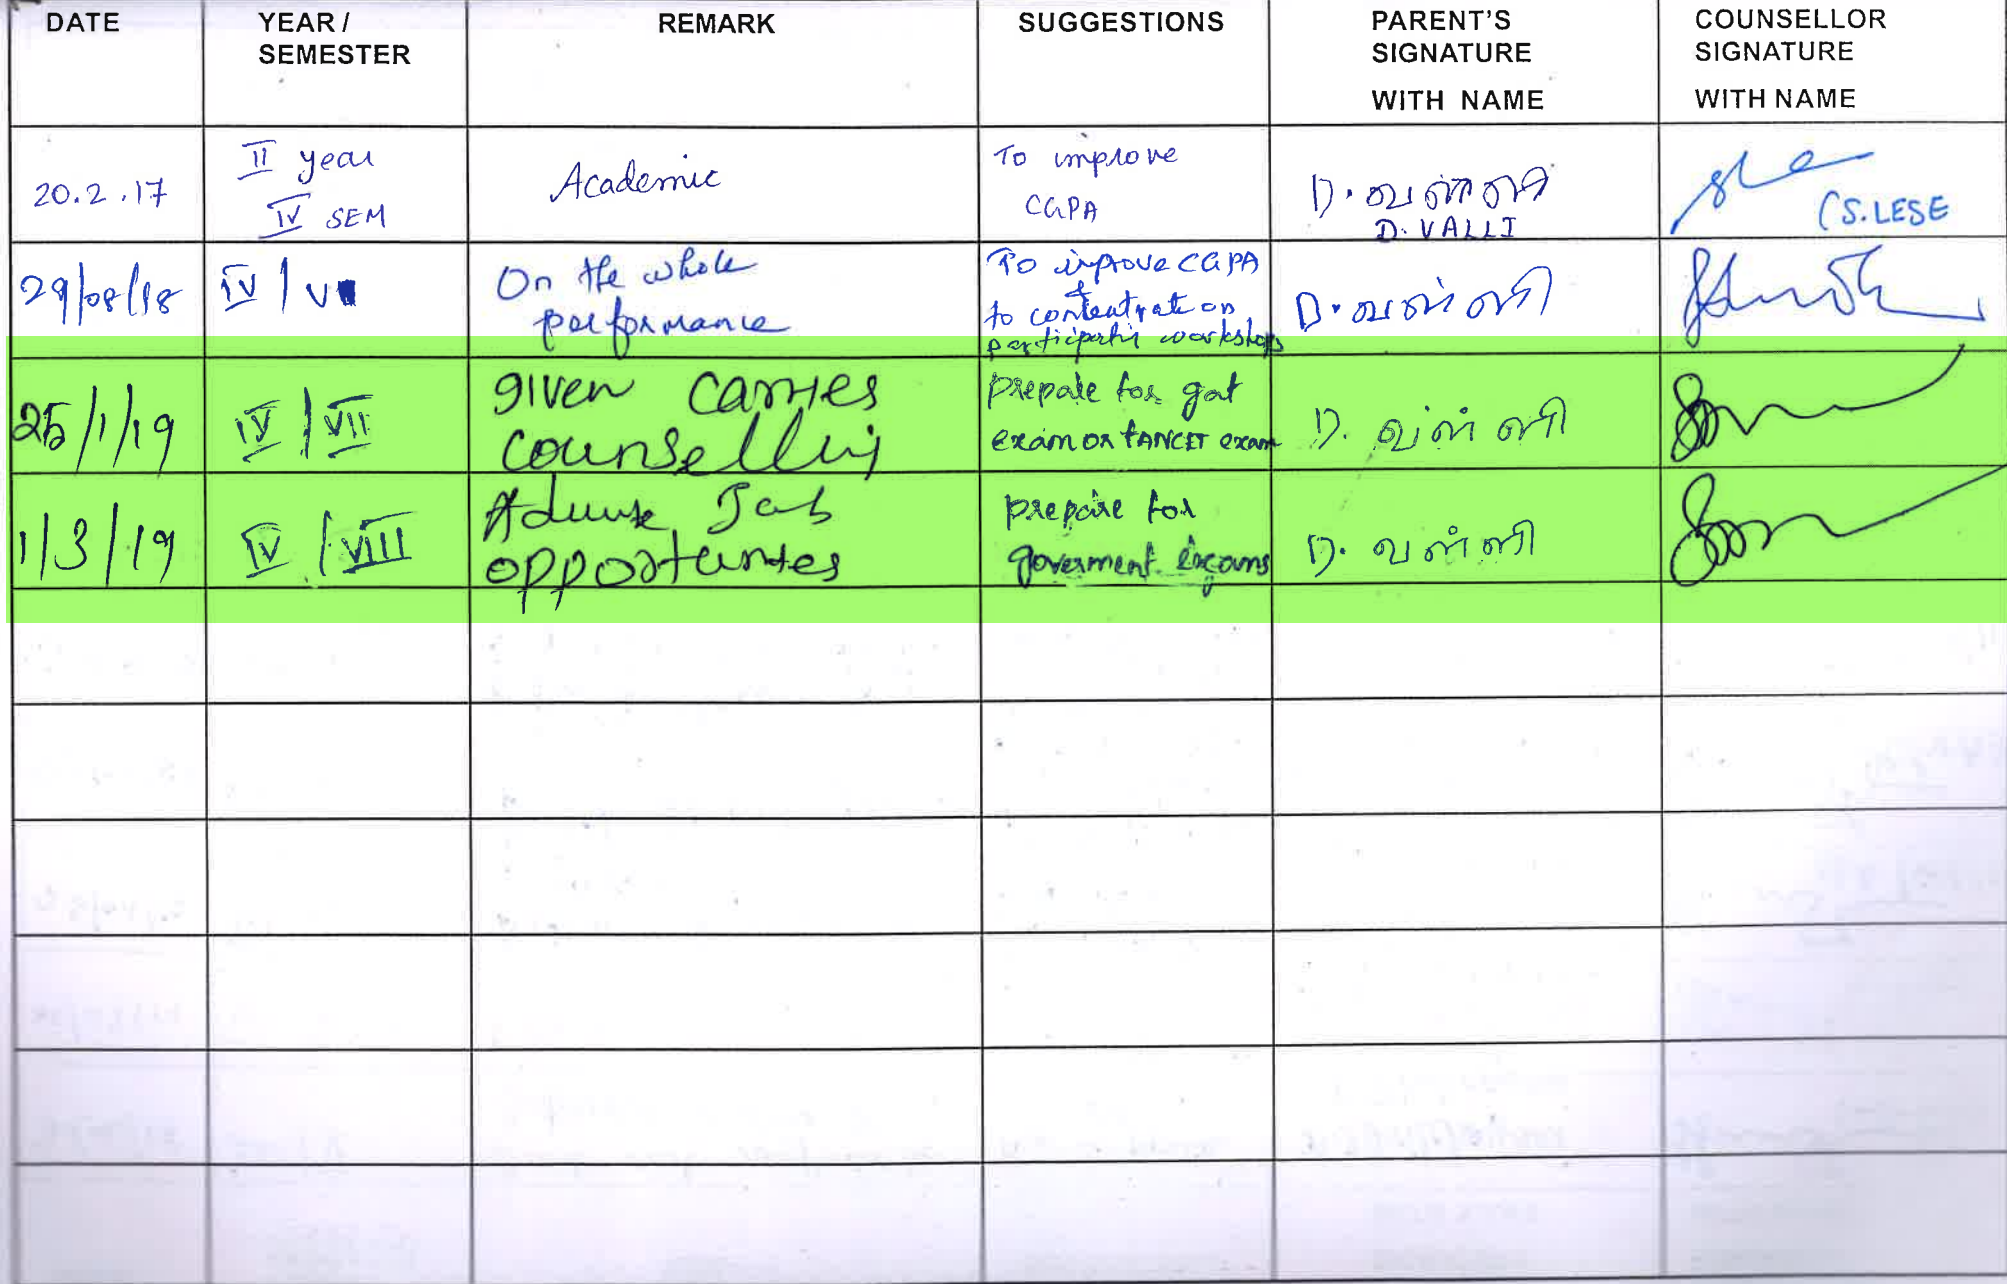 DATE YEAR / SEMESTER REMARK SUGGESTIONS PARENT'S SIGNATURE WITH NAME COUNSELLOR SIGNATURE WITH NAME
20.2.17 II year IV SEM Academic To improve CGPA D. வள்ளி D. VALLI (S.LESE
29/08/18 IV / V On the whole performance To improve CGPA & to contentrate on participatin workshops D. வள்ளி
25/1/19 IV / VII given carries counselling prepale for gat exam or TANCET exam D. வள்ளி
1/3/19 IV / VIII Job opportunites prepaire for goverment excams D. வள்ளி